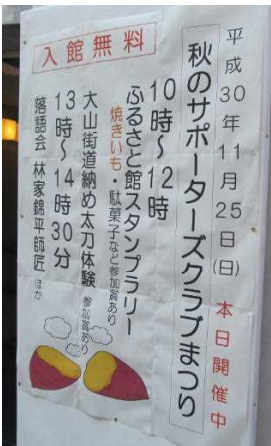 平成30年11月25日(日)
本日開催中
秋のサポーターズクラブまつり
10時〜12時
ふるさと館スタンプラリー
焼きいも・駄菓子など参加賞あり
大山街道納め太刀体験 参加賞あり
13時〜14時30分
落語会 林家錦平師匠 ほか
入館無料